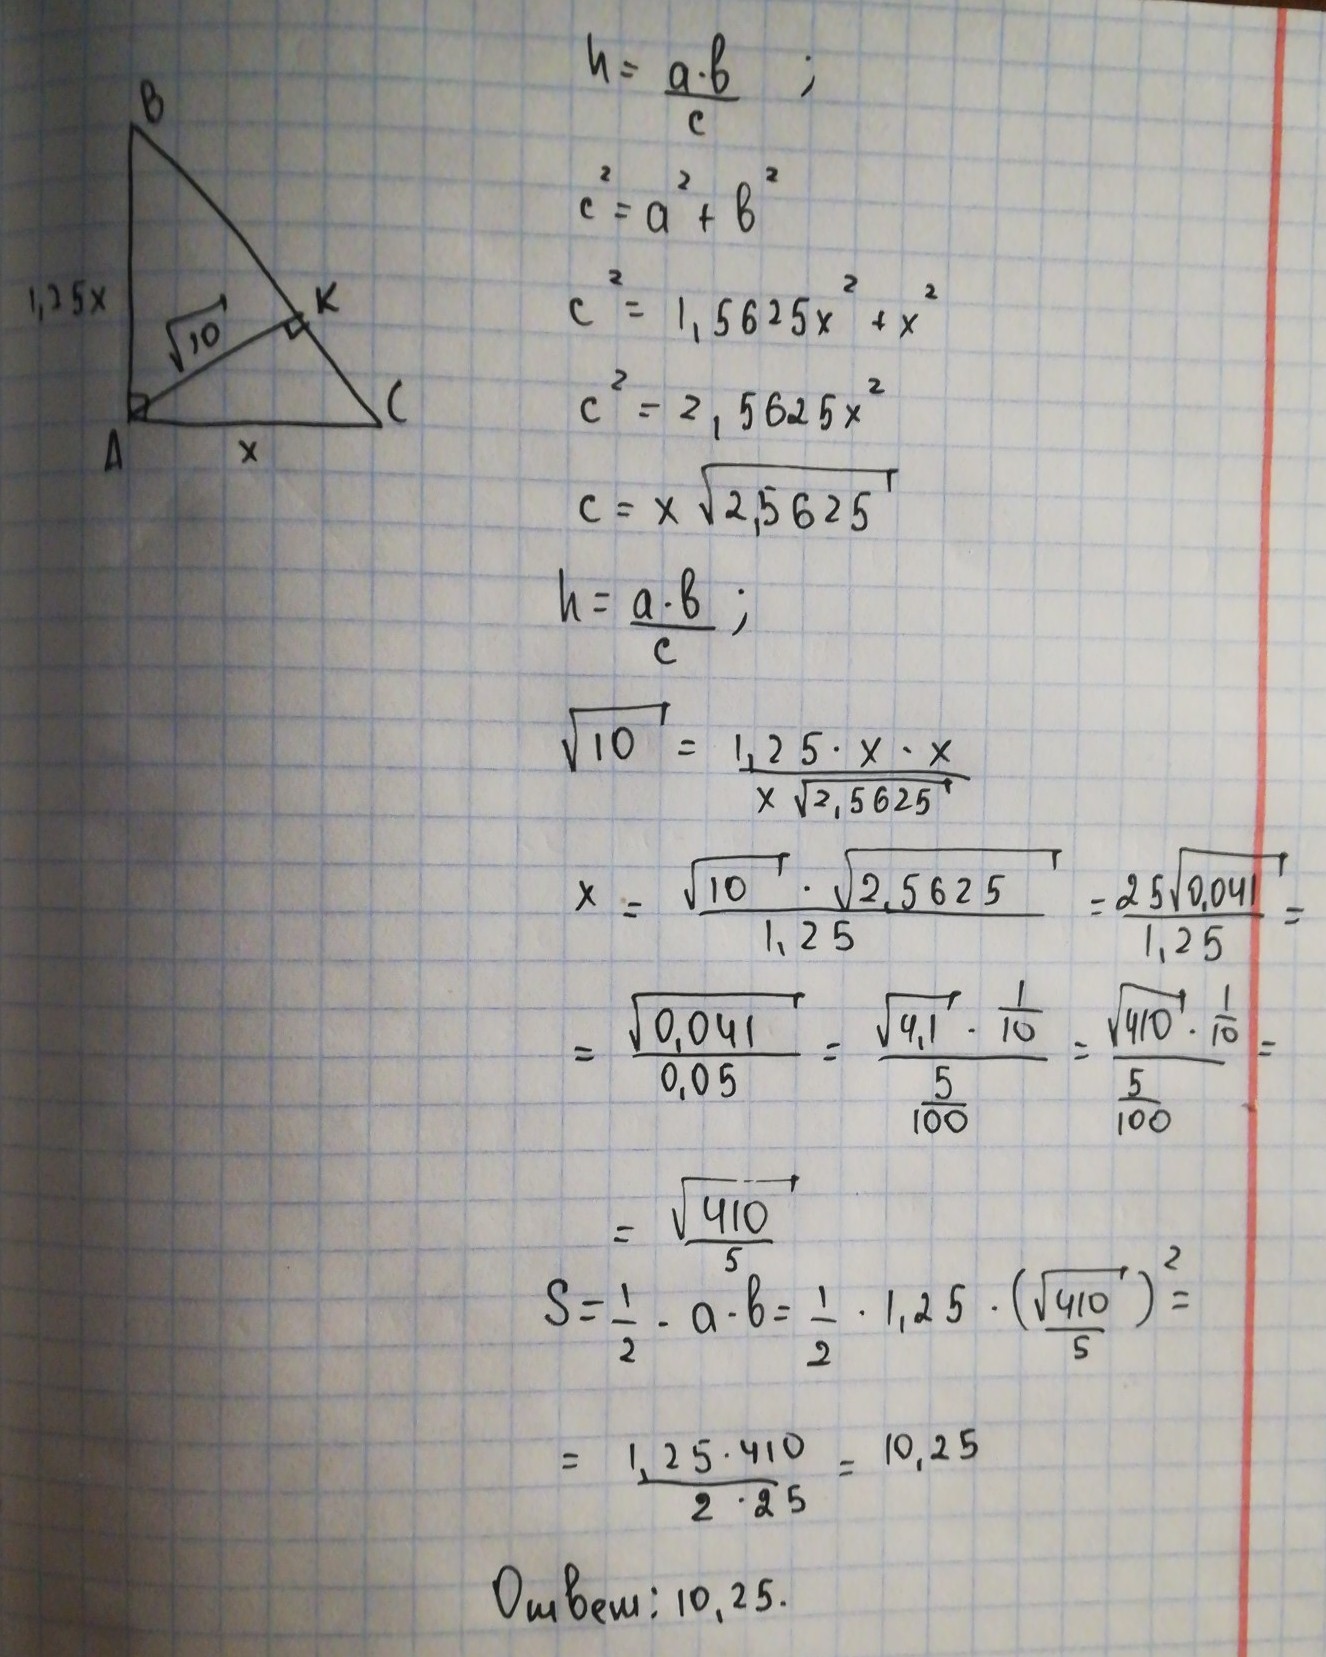 B
1,25x
√10
K
A
x
C
h = a·b/c ;
c² = a² + b²
c² = 1,5625x² + x²
c² = 2,5625x²
c = x √2,5625
h = a·b/c ;
√10 = 1,25·x·x / x√2,5625
x = √10 · √2,5625 / 1,25 = 25√0,041 / 1,25 =
= √0,041 / 0,05 = √4,1 · 1/10 / 5/100 = √410 · 1/10 / 5/100 =
= √410 / 5
S = 1/2 · a·b = 1/2 · 1,25 · (√410/5)² =
= 1,25·410 / 2·25 = 10,25
Ответ: 10,25.